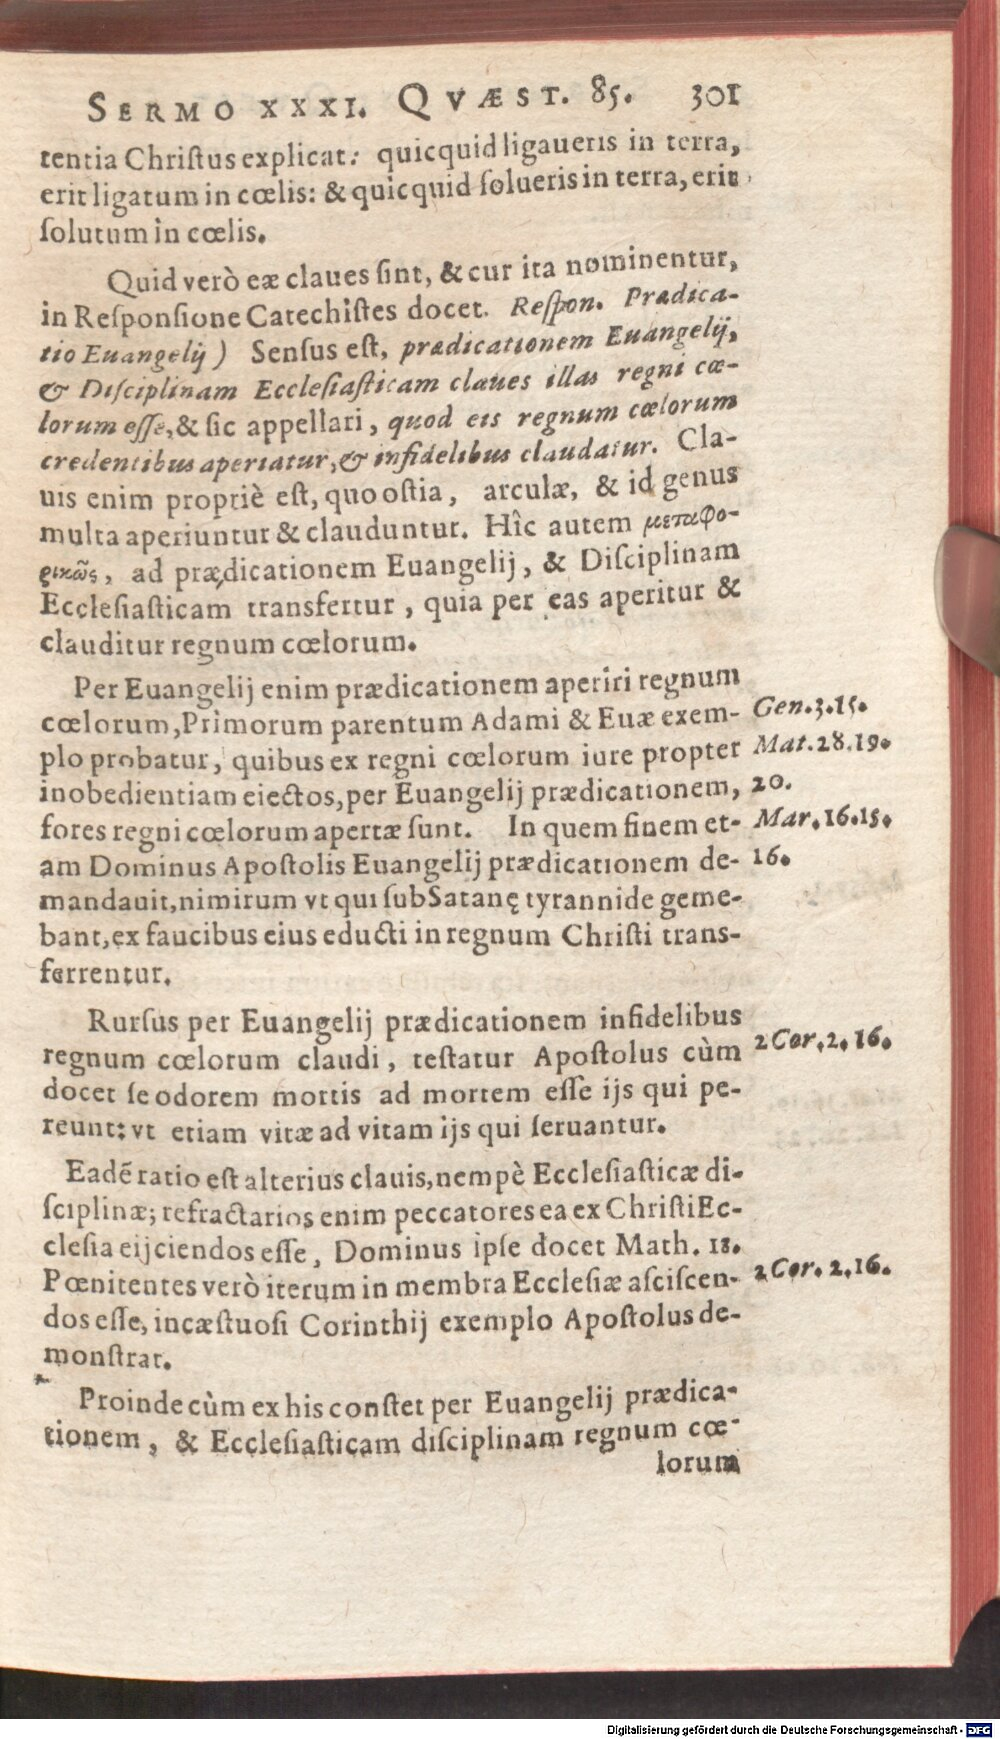 SERMO XXXI. QVÆST. 85. 301
tentia Chriſtus explicat: quicquid ligaueris in terra,
erit ligatum in cœlis: & quicquid ſolueris in terra, erit
ſolutum in cœlis.
Quid verò eæ claues ſint, & cur ita nominentur,
in Reſponſione Catechiſtes docet. Reſpon. Prædica-
tio Euangelij) Senſus eſt, prædicationem Euangelij,
& Diſciplinam Eccleſiaſticam claues illas regni cœ-
lorum eſſe, & ſic appellari, quod eis regnum cœlorum
credentibus aperiatur, & infidelibus claudatur. Cla-
uis enim propriè eſt, quo oſtia, arculæ, & id genus
multa aperiuntur & clauduntur. Hîc autem μεταφο-
ρικῶς, ad prædicationem Euangelij, & Diſciplinam
Eccleſiaſticam transfertur, quia per eas aperitur &
clauditur regnum cœlorum.
Per Euangelij enim prædicationem aperiri regnum
cœlorum, Primorum parentum Adami & Euæ exem- Gen. 3. 15.
plo probatur, quibus ex regni cœlorum iure propter Mat. 28. 19.
inobedientiam eiectos, per Euangelij prædicationem, 20.
fores regni cœlorum apertæ ſunt. In quem finem et- Mar. 16. 15.
am Dominus Apoſtolis Euangelij prædicationem de- 16.
mandauit, nimirum vt qui ſub Satanę tyrannide geme-
bant, ex faucibus eius educti in regnum Chriſti trans-
ferrentur.
Rurſus per Euangelij prædicationem infidelibus
regnum cœlorum claudi, teſtatur Apoſtolus cùm 2 Cor. 2. 16.
docet ſe odorem mortis ad mortem eſſe ijs qui pe-
reunt: vt etiam vitæ ad vitam ijs qui ſeruantur.
Eadẽ ratio eſt alterius clauis, nempè Eccleſiaſticæ di-
ſciplinæ; refractarios enim peccatores ea ex Chriſti Ec-
cleſia eijciendos eſſe, Dominus ipſe docet Math. 18.
Pœnitentes verò iterum in membra Eccleſiæ aſciſcen- 2 Cor. 2. 16.
dos eſſe, incæſtuoſi Corinthij exemplo Apoſtolus de-
monſtrat.
Proinde cùm ex his conſtet per Euangelij prædica-
tionem, & Eccleſiaſticam diſciplinam regnum cœ-
lorum
Digitalisierung gefördert durch die Deutsche Forschungsgemeinschaft - DFG